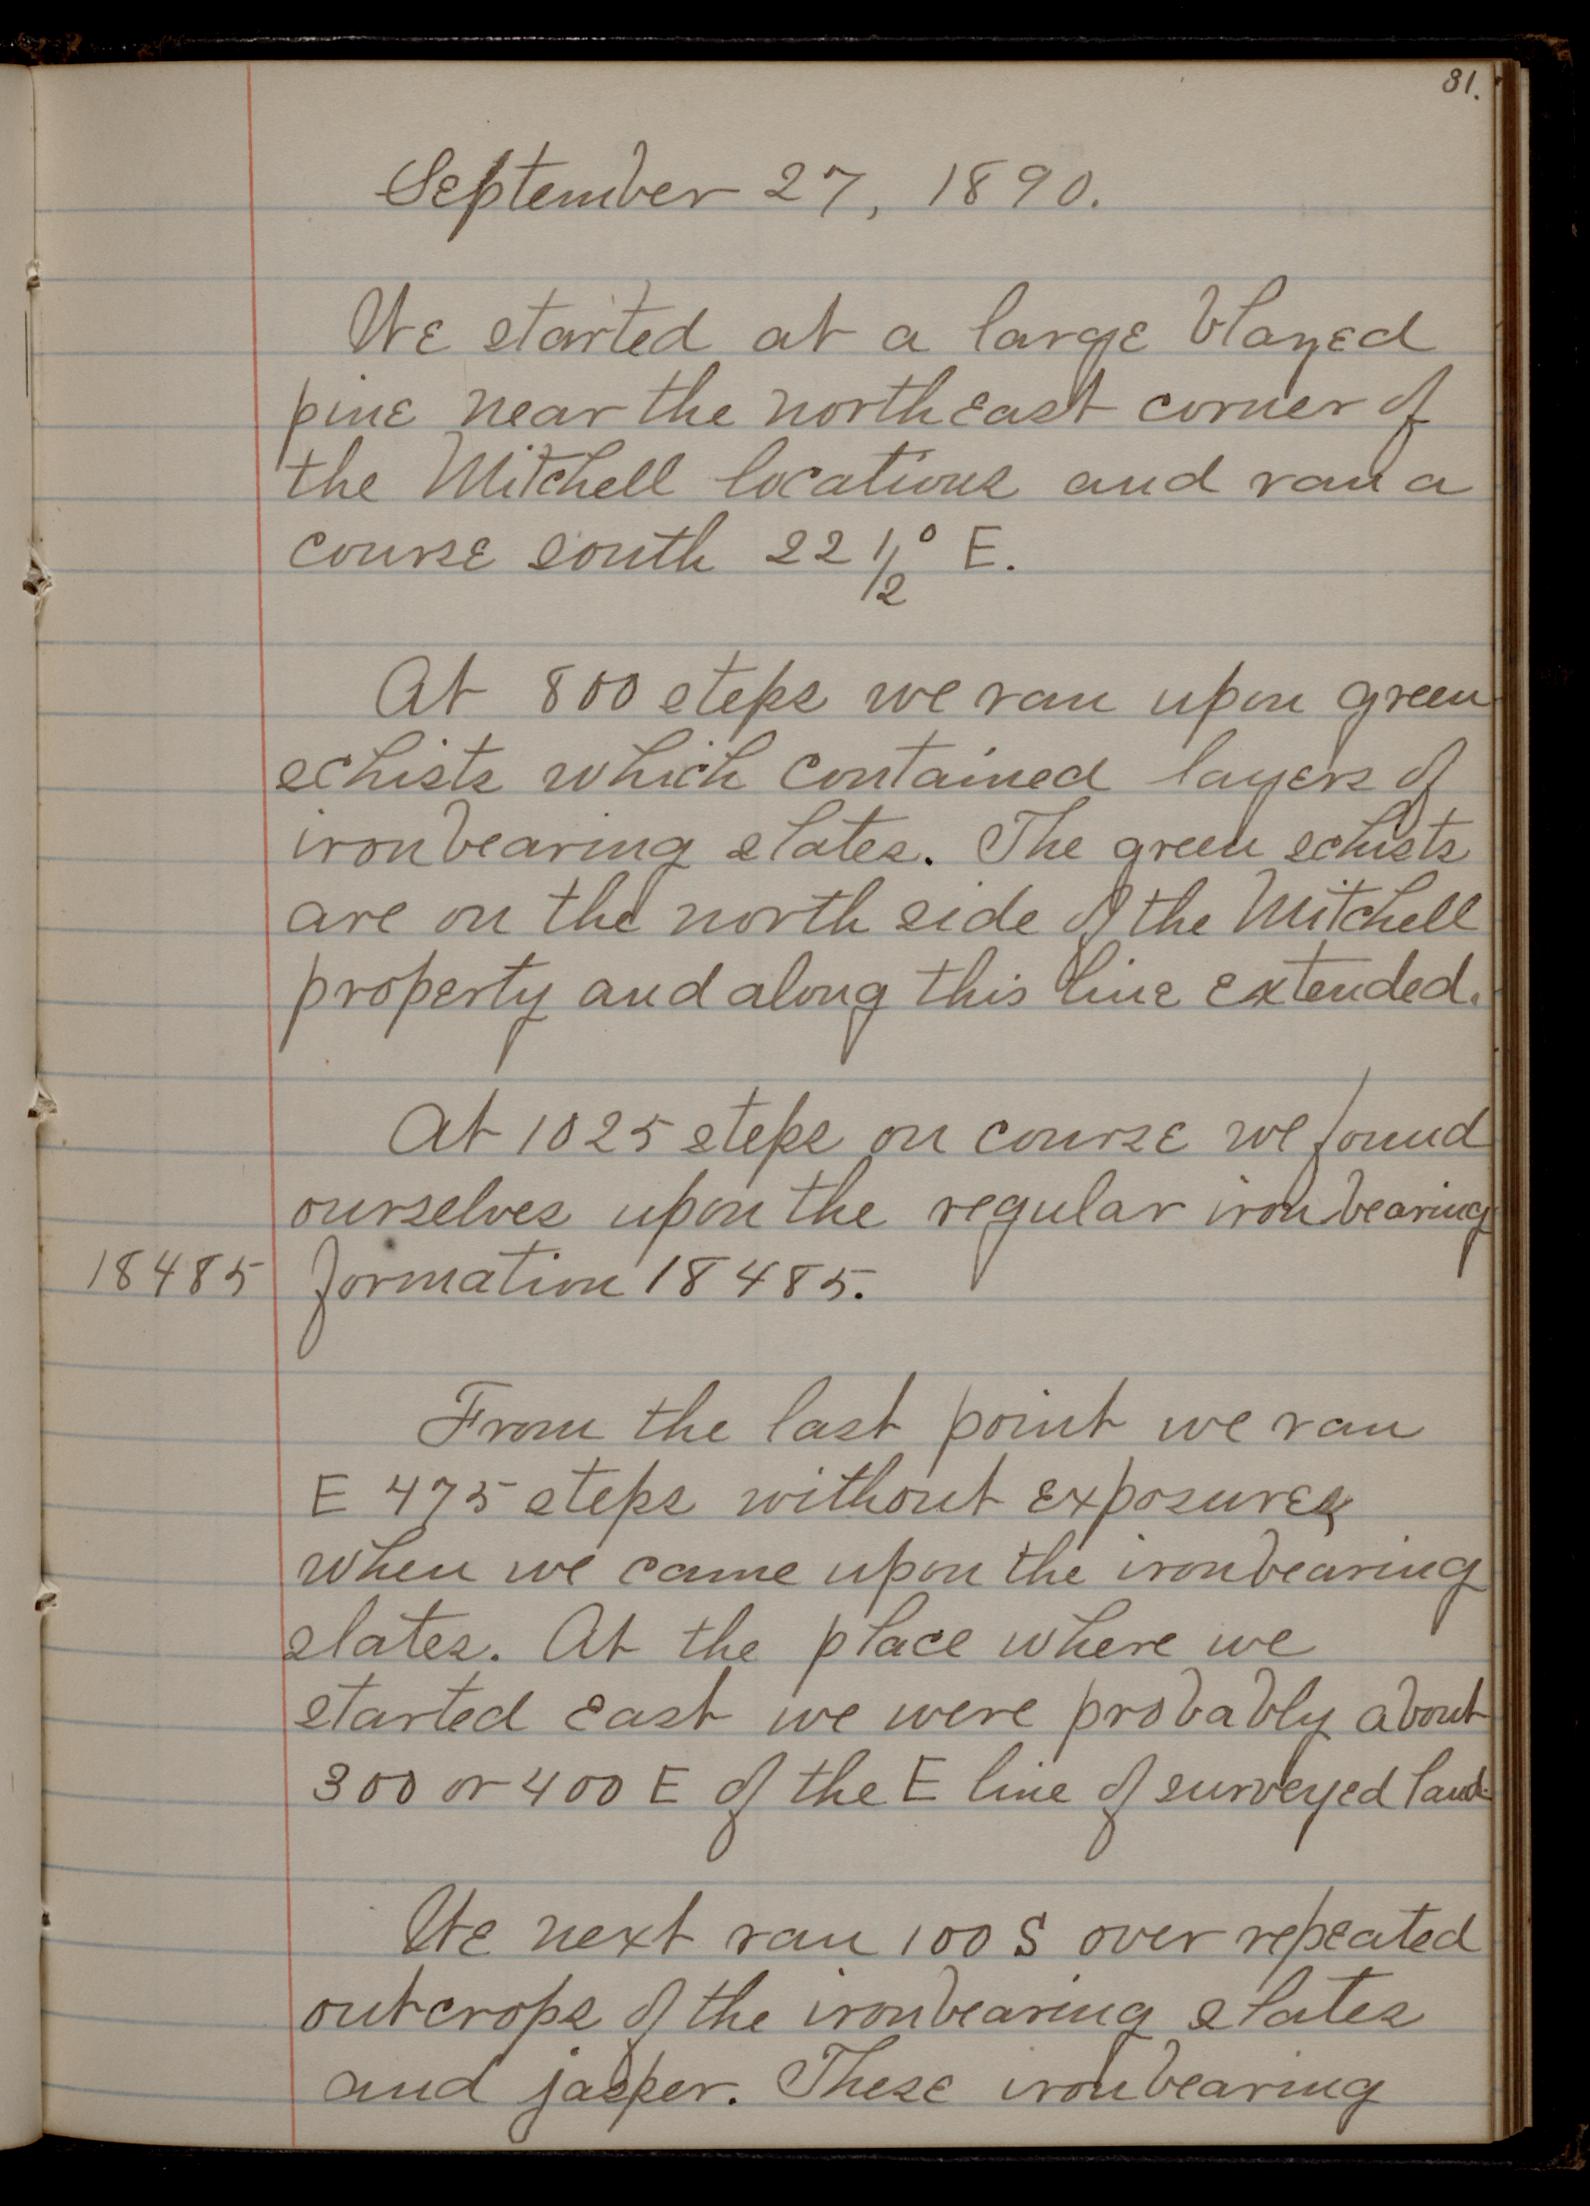 31.
September 27, 1890.
We started at a large blazed
pine near the northeast corner of
the Mitchell locations and ran a
course south 22 1/2° E.
At 800 steps we ran upon green
schists which contained layers of
ironbearing slates. The green schists
are on the north side of the Mitchell
property and along this line extended.
At 1025 steps on course we found
ourselves upon the regular ironbearing
18485 formation 18485.
From the last point we ran
E 475 steps without exposures
when we came upon the ironbearing
slates. At the place where we
started east we were probably about
300 or 400 E of the E line of surveyed land.
We next ran 100 S over repeated
outcrops of the ironbearing slates
and jasper. These ironbearing